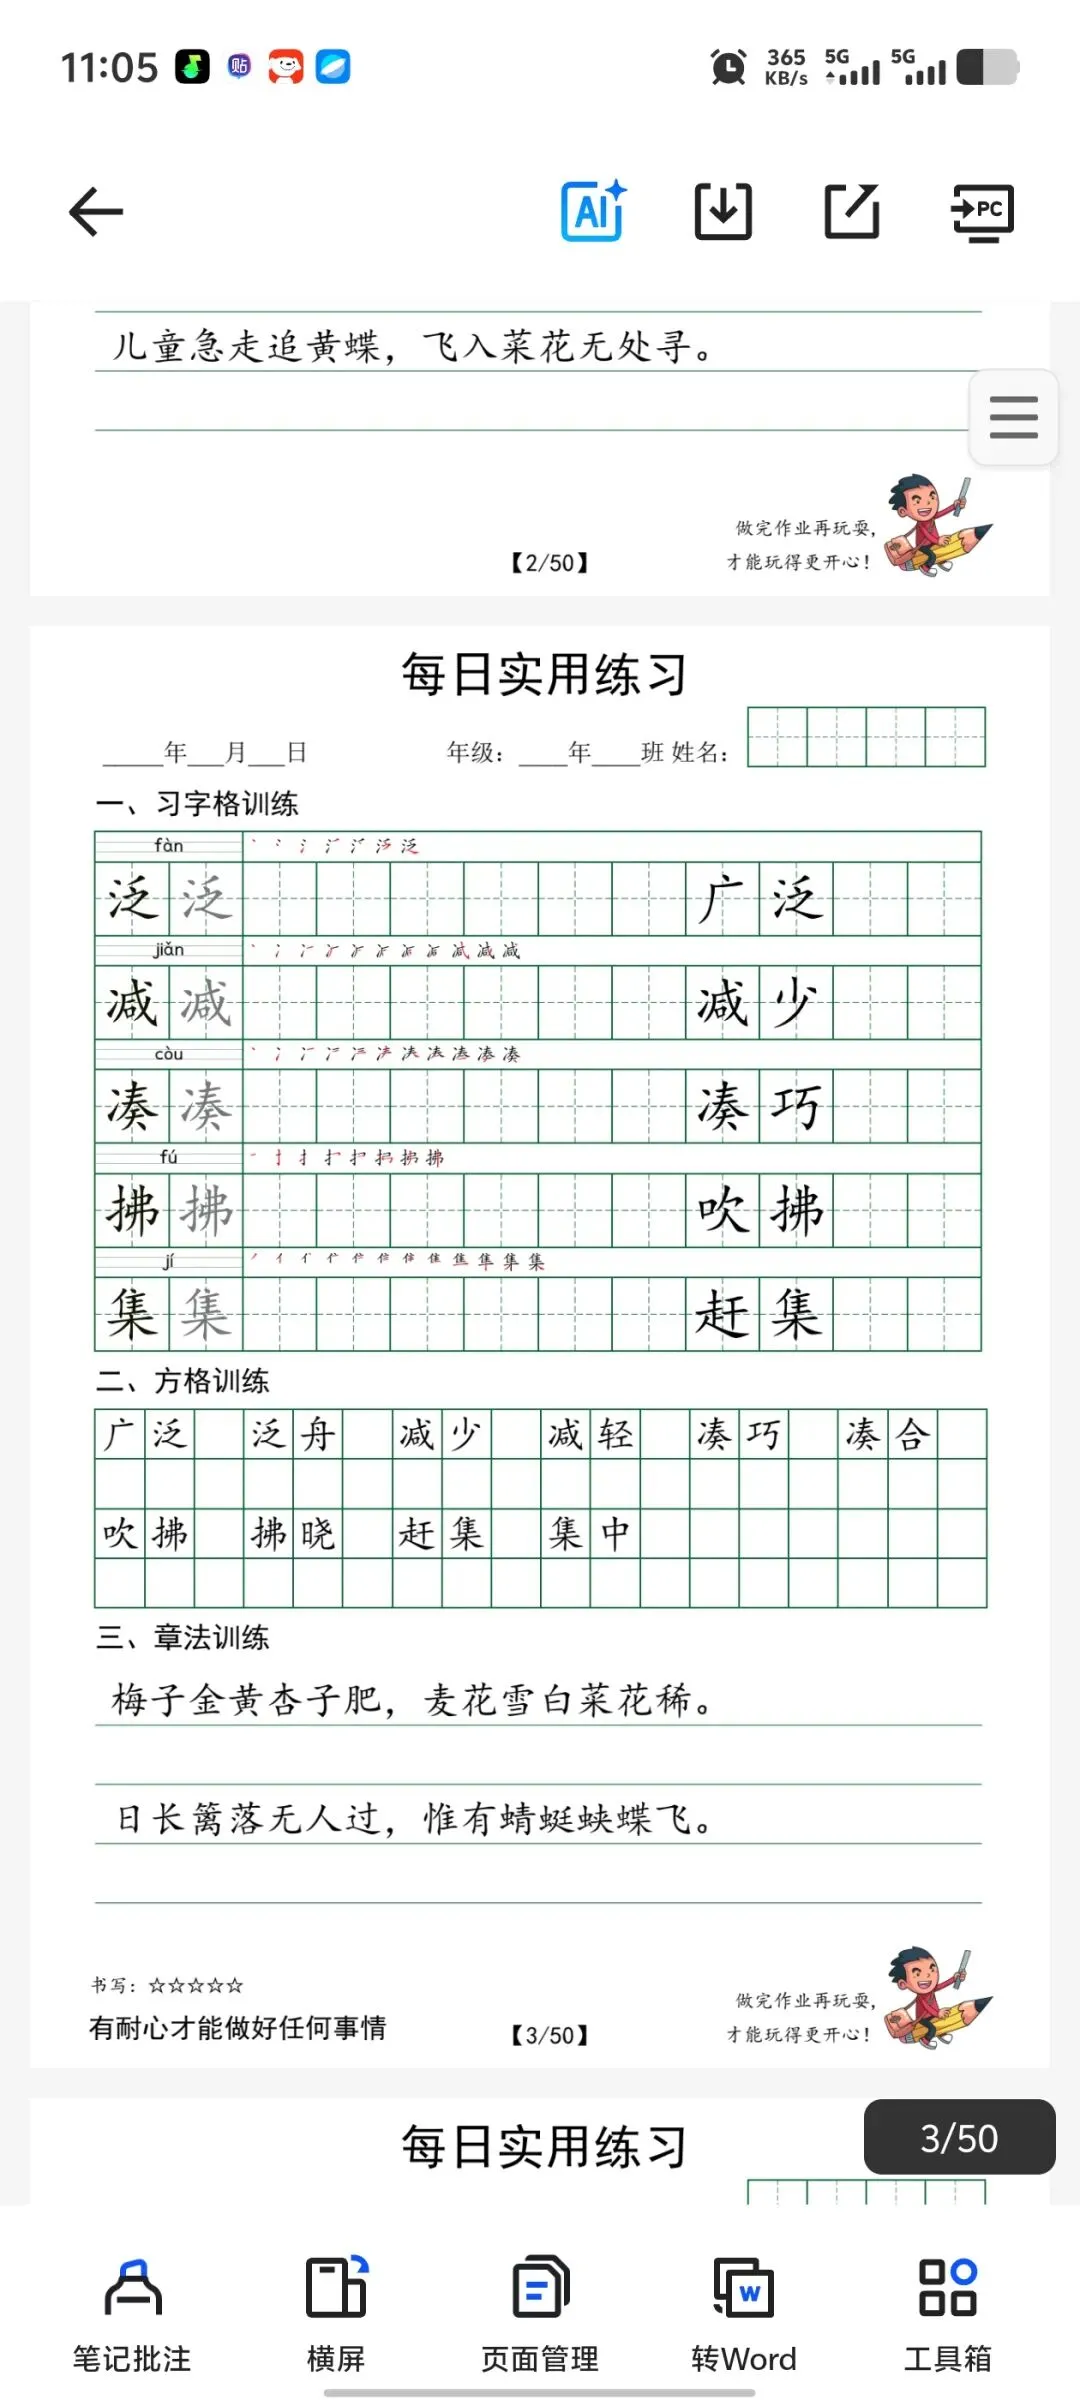 11:05 贴 365 KB/s 5G 5G
AI PC
儿童急走追黄蝶，飞入菜花无处寻。
做完作业再玩耍，
才能玩得更开心！
【2/50】
每日实用练习
_____年___月___日 年级：____年____班 姓名：
一、习字格训练
fàn
泛 泛 广 泛
jiǎn
减 减 减 少
còu
凑 凑 凑 巧
fú
拂 拂 吹 拂
jí
集 集 赶 集
二、方格训练
广泛 泛舟 减少 减轻 凑巧 凑合
吹拂 拂晓 赶集 集中
三、章法训练
梅子金黄杏子肥，麦花雪白菜花稀。
日长篱落无人过，惟有蜻蜓蛱蝶飞。
书写：☆☆☆☆☆
有耐心才能做好任何事情
【3/50】
做完作业再玩耍，
才能玩得更开心！
每日实用练习
3/50
笔记批注 横屏 页面管理 转Word 工具箱